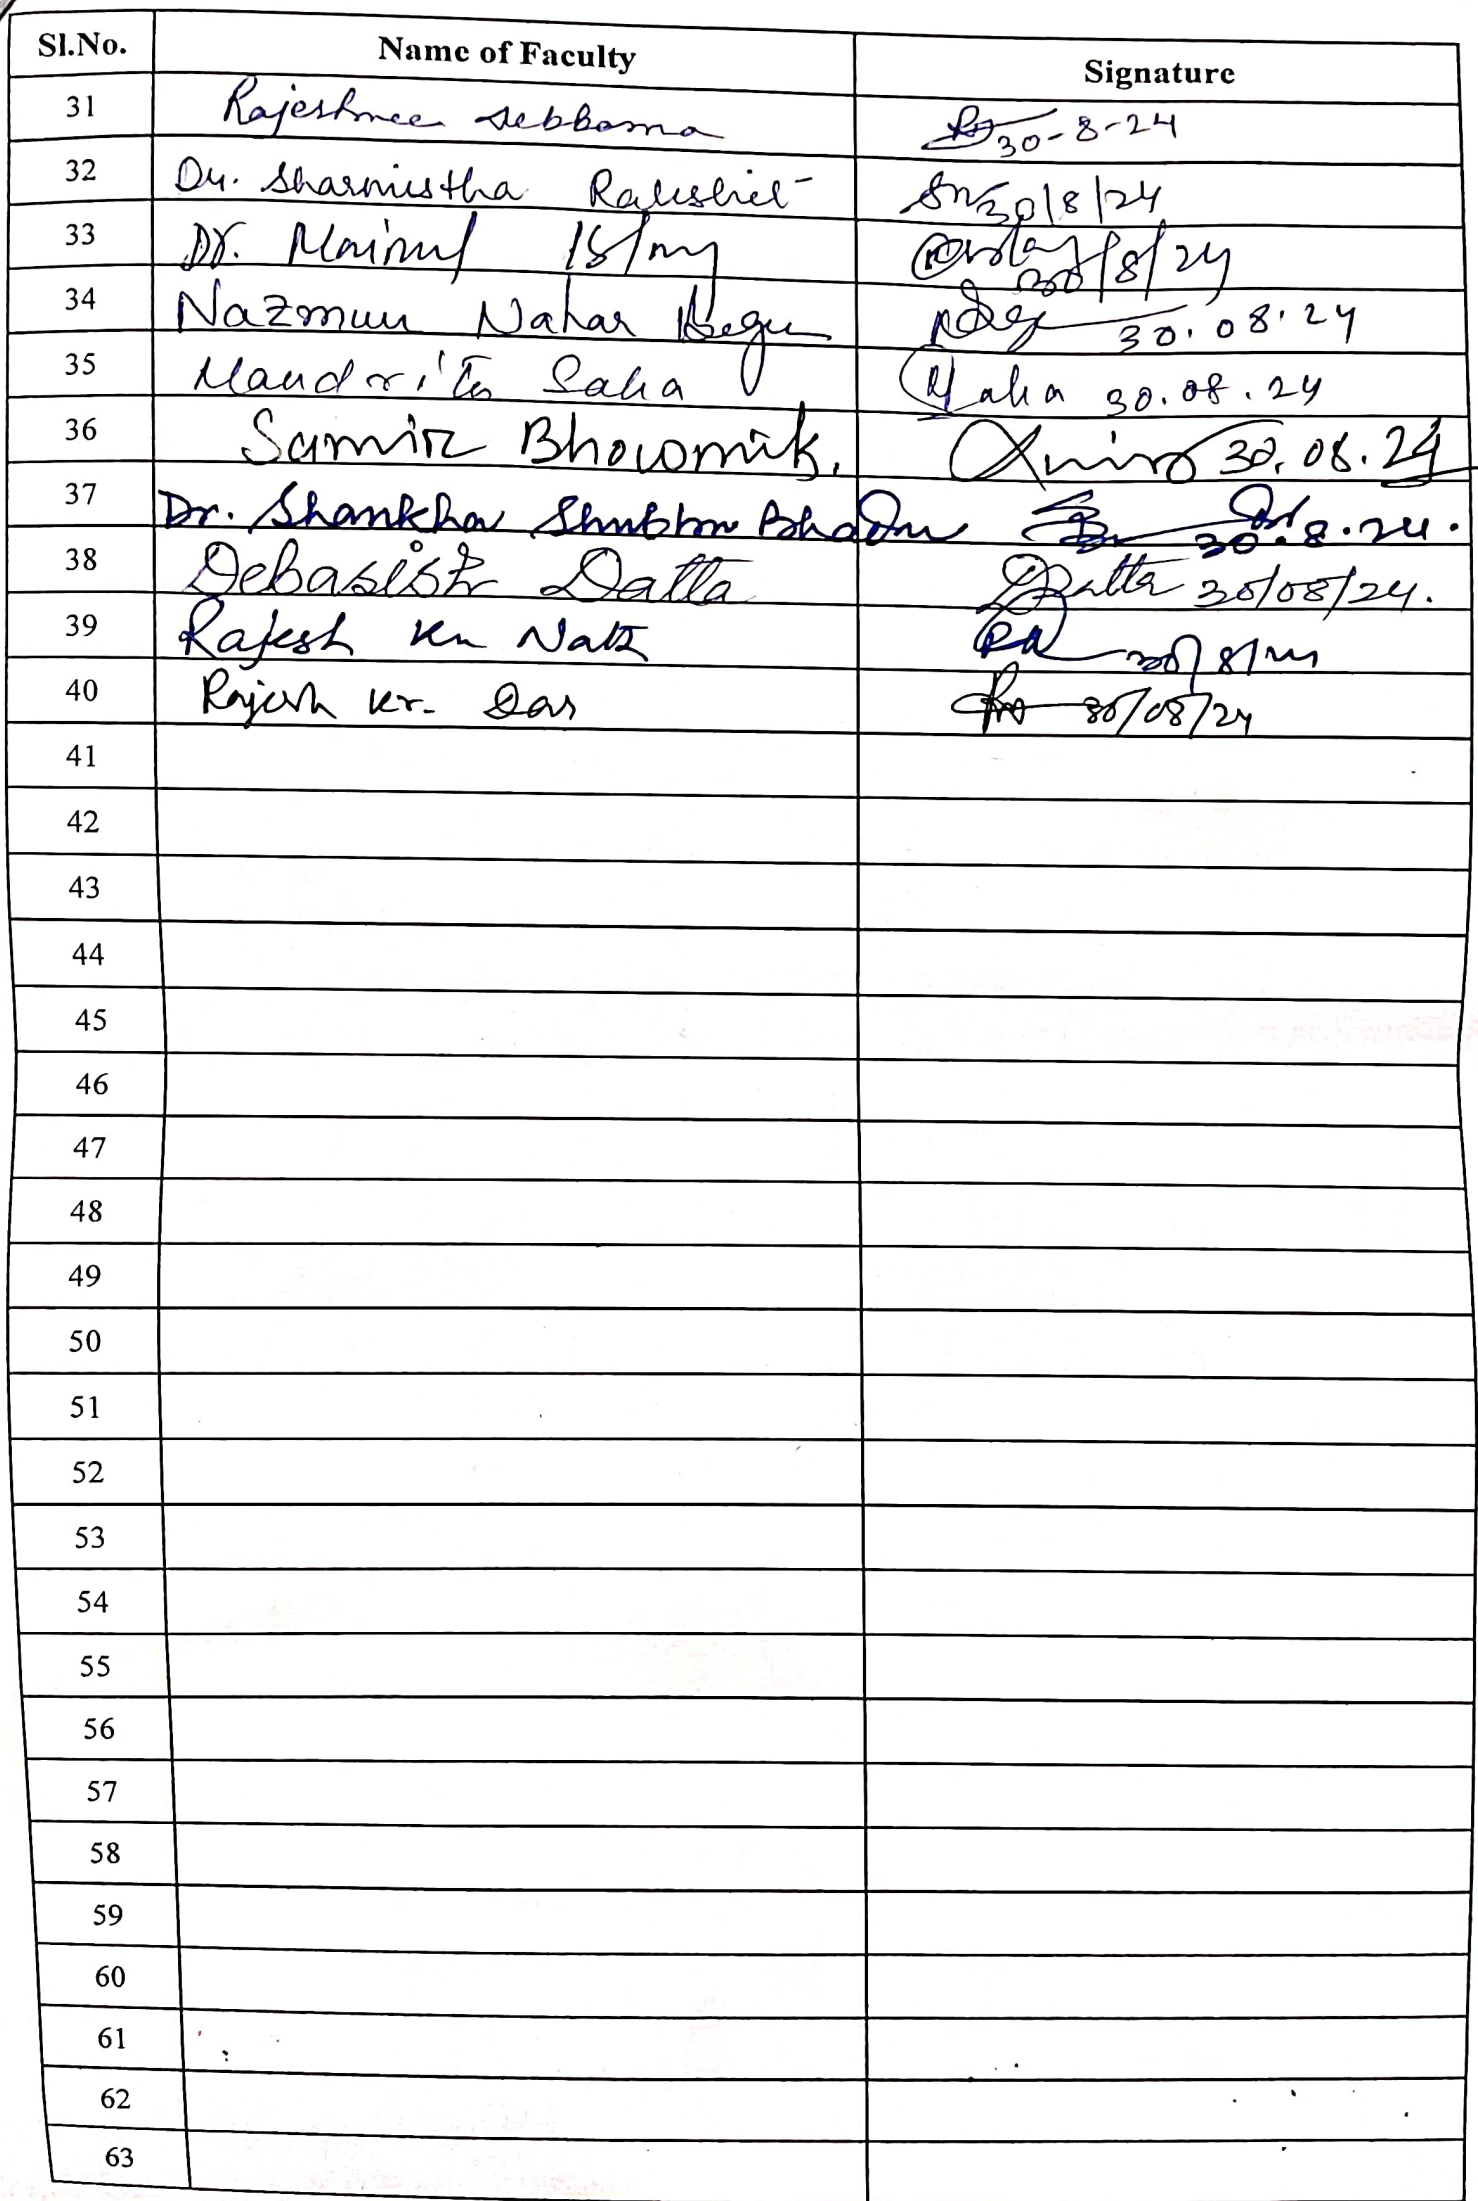 Sl.No. Name of Faculty Signature
31 Rajeshree debbarma 30-8-24
32 Dr. Sharmistha Rakshit 30/8/24
33 Dr. Mainul Islam 30/8/24
34 Nazmun Nahar Begum 30.08.24
35 Mandrita Saha Saha 30.08.24
36 Samir Bhowmik. 30.08.24
37 Dr. Shankha Shubhra 30.8.24.
38 Debasish Datta Datta 30/08/24.
39 Rajesh Kr Nath 30/8/24
40 Rajesh Kr. Das 30/08/24
41
42
43
44
45
46
47
48
49
50
51
52
53
54
55
56
57
58
59
60
61
62
63